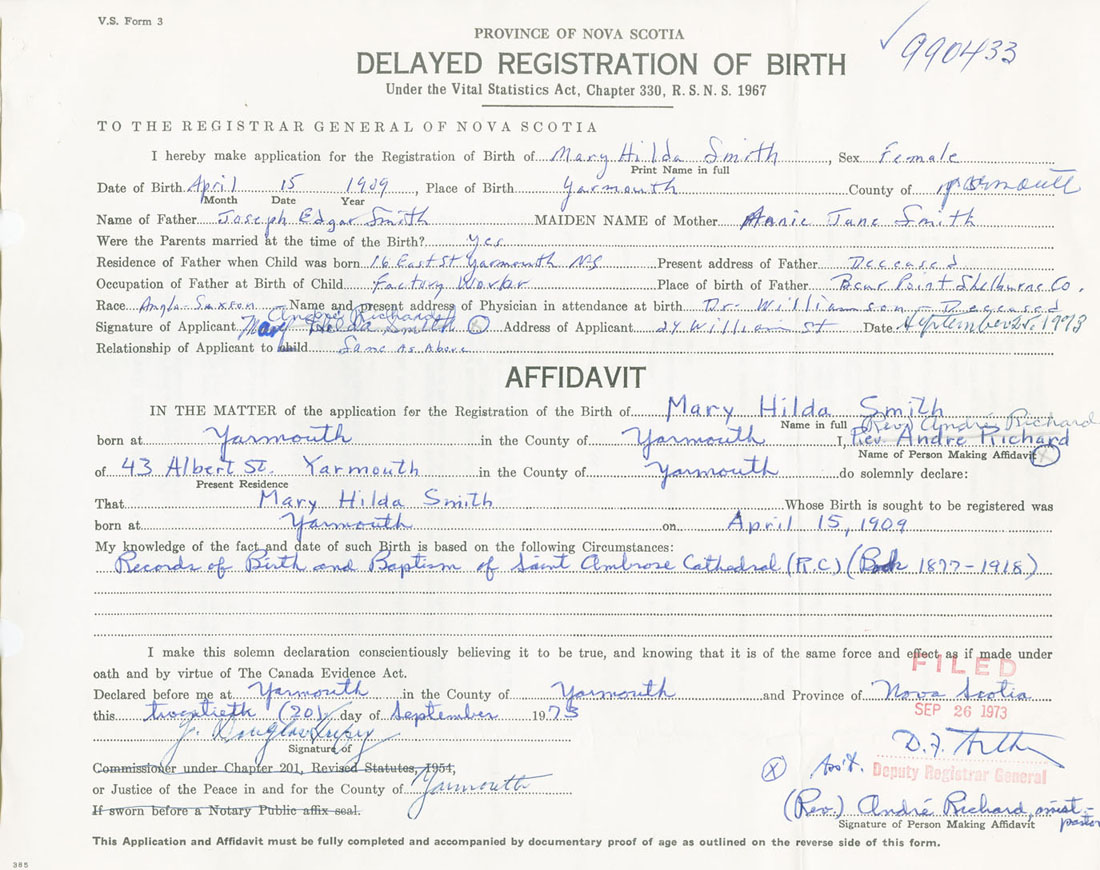 V.S. Form 3
PROVINCE OF NOVA SCOTIA
990433
DELAYED REGISTRATION OF BIRTH
Under the Vital Statistics Act, Chapter 330, R.S.N.S. 1967
TO THE REGISTRAR GENERAL OF NOVA SCOTIA
I hereby make application for the Registration of Birth of Mary Hilda Smith, Sex Female
Print Name in full
Date of Birth April 15 1909, Place of Birth Yarmouth County of Yarmouth
Month Date Year
Name of Father Joseph Edgar Smith MAIDEN NAME of Mother Annie Jane Smith
Were the Parents married at the time of the Birth? Yes
Residence of Father when Child was born 16 East St Yarmouth NS Present address of Father Deceased
Occupation of Father at Birth of Child Factory Worker Place of birth of Father Bear Point Shelburne Co.
Race Anglo-Saxon Name and present address of Physician in attendance at birth Dr. Williamson - Deceased
André Richard
Signature of Applicant Mary Hilda Smith Address of Applicant 24 William St Date September 25, 1973
Relationship of Applicant to child Same As Above
AFFIDAVIT
IN THE MATTER of the application for the Registration of the Birth of Mary Hilda Smith
Name in full (Rev.) André Richard
born at Yarmouth in the County of Yarmouth I, Rev. Andre Richard
Name of Person Making Affidavit
of 43 Albert St. Yarmouth in the County of Yarmouth do solemnly declare:
Present Residence
That Mary Hilda Smith Whose Birth is sought to be registered was
born at Yarmouth on April 15, 1909
My knowledge of the fact and date of such Birth is based on the following Circumstances:
Records of Birth and Baptism of Saint Ambrose Cathedral (R.C) (Book 1877-1918)
I make this solemn declaration conscientiously believing it to be true, and knowing that it is of the same force and effect as if made under
FILED
oath and by virtue of The Canada Evidence Act.
Declared before me at Yarmouth in the County of Yarmouth and Province of Nova Scotia
this twentieth (20) day of September 1973
SEP 26 1973
Signature of
Commissioner under Chapter 201, Revised Statutes, 1954,
Ass't. Deputy Registrar General
or Justice of the Peace in and for the County of Yarmouth
(Rev.) André Richard, assist- pastor
If sworn before a Notary Public affix seal.
Signature of Person Making Affidavit
This Application and Affidavit must be fully completed and accompanied by documentary proof of age as outlined on the reverse side of this form.
365